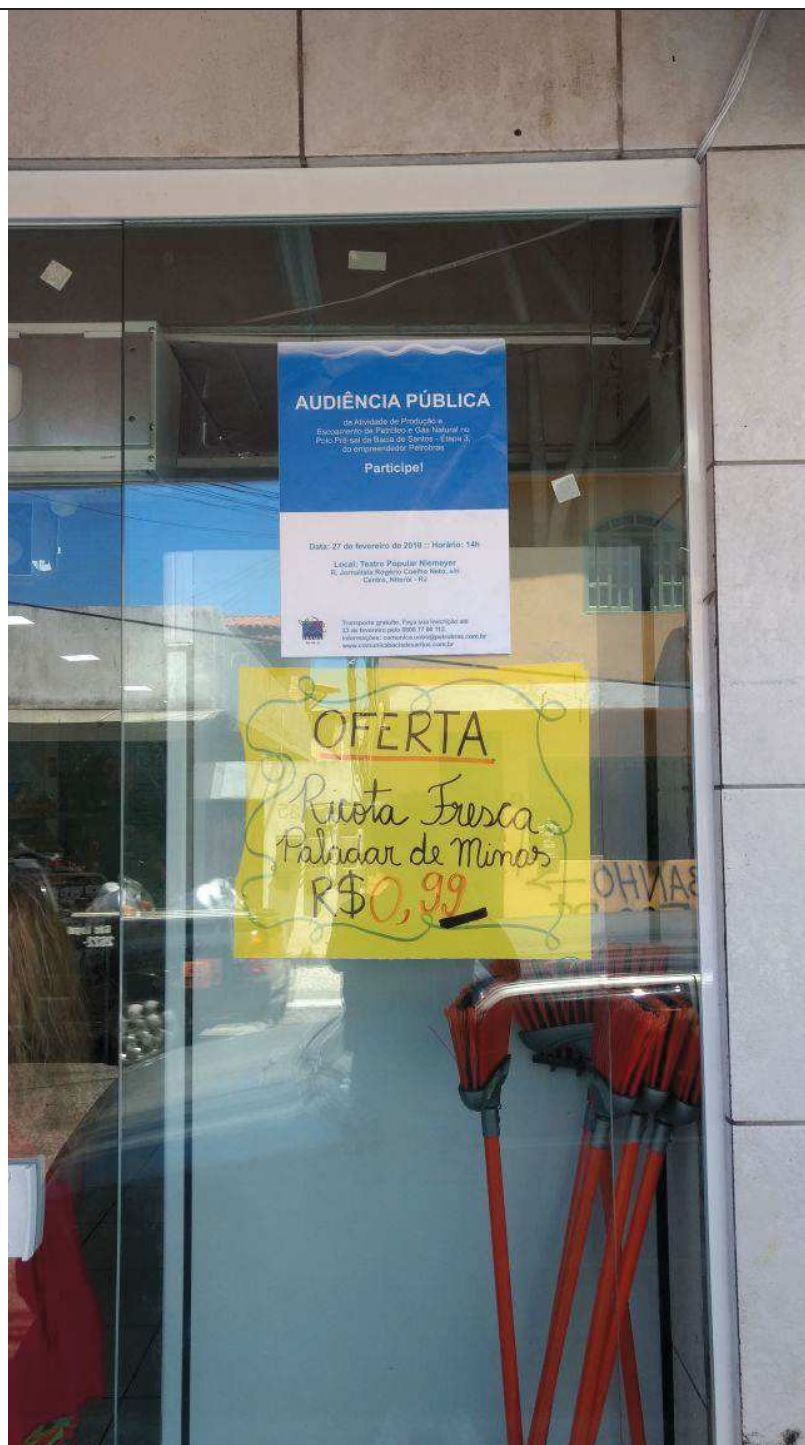 AUDIÊNCIA PÚBLICA
da Atividade de Produção e
Escoamento de Petróleo e Gás Natural no
Polo Pré-sal da Bacia de Santos - Etapa 3,
do empreendedor Petrobras
Participe!
Data: 27 de fevereiro de 2018 :: Horário: 14h
Local: Teatro Popular Niemeyer
R. Jornalista Rogério Coelho Neto, s/n
Centro, Niterói - RJ
Transporte gratuito. Faça sua inscrição até
23 de fevereiro pelo 0800 77 00 112.
Informações: comunica.uobs@petrobras.com.br
www.comunicabaciadesantos.com.br
OFERTA
Ricota Fresca
Paladar de Minas
R$ 0,99
BANHO